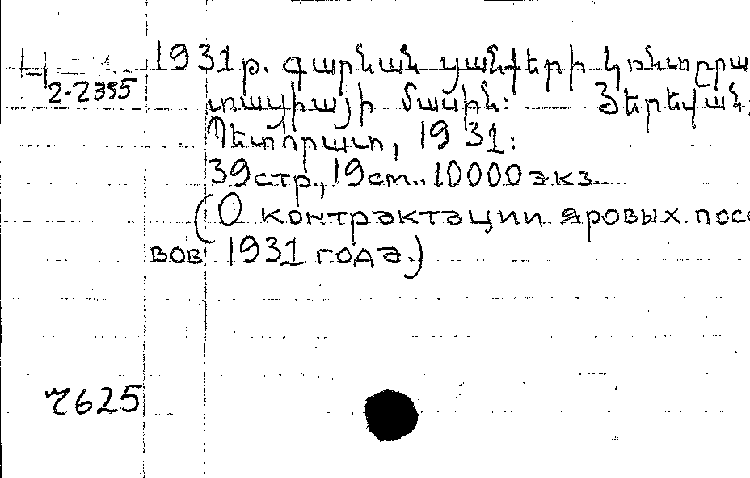 Ч 1931թ. գարնան ցանքերի կոնտրա
2-2355 տացիայի մասին: Յերեվան,
Պետհրատ, 1931:
39 стр., 19 см. 10000 экз.
(О контрактации яровых посе
вов 1931 года.)
7625